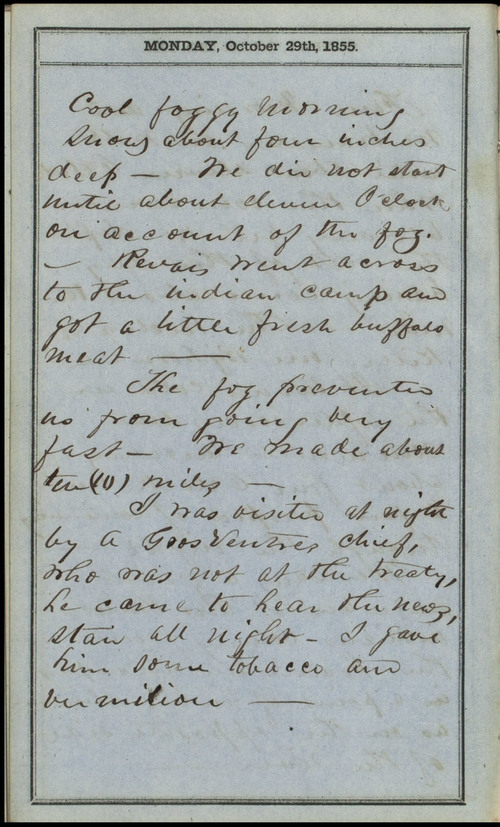 MONDAY, October 29th, 1855.
Cool foggy morning
Snow about four inches
deep — We did not start
until about eleven O'clock
on account of the fog.
— Revais went across
to the indian camp and
got a little fresh buffalo
meat —
The fog prevented
us from going very
fast — We made about
ten (10) miles —
I was visited at night
by a Gros Ventres chief,
who was not at the treaty,
he came to hear the news,
staid all night — I gave
him some tobacco and
vermilion —